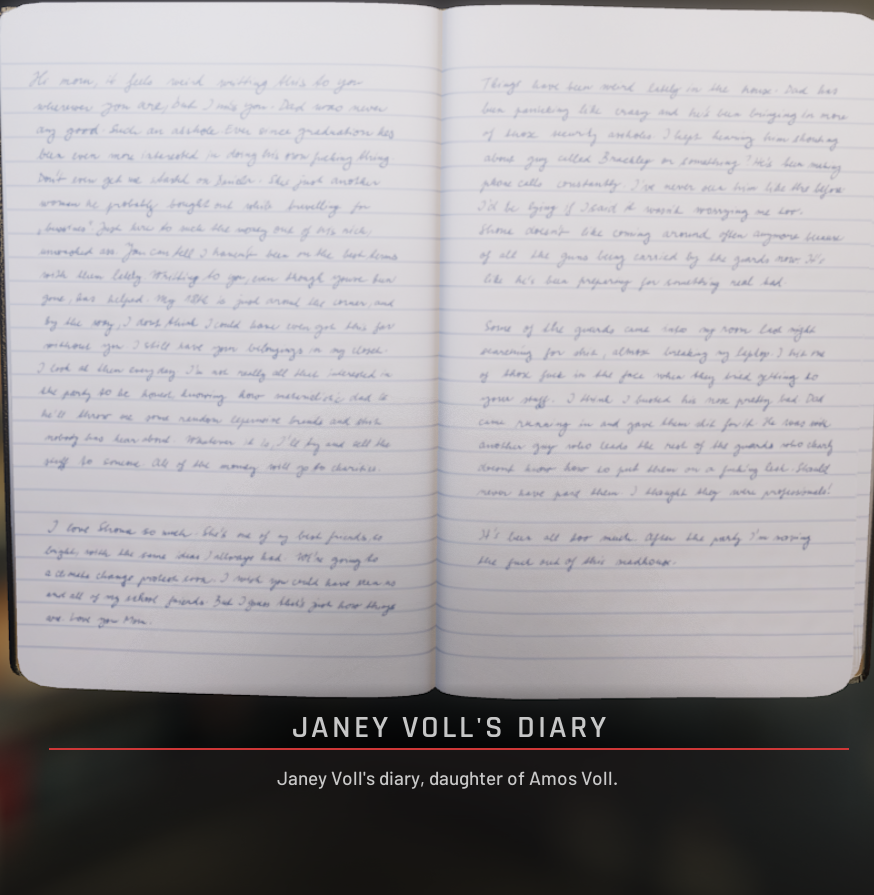 Hi mom, it feels weird writting this to you
wherever you are, but I miss you. Dad was never
any good. Such an asshole. Ever since graduation he's
been even more interested in doing his own fucking thing.
Don't even get me started on She just another
women he probably bought out while travelling for
"business". Just here to suck the money out of his rich,
ass. You can tell I haven't been on the best terms
with them lately. Writing to you, even though you've been
gone, has helped. My 18th is just around the corner, and
by the way, I don't think I could have even got this far
without you. I still have your belongings in my closet.
I look at them everyday. I'm not really all that interested in
the party to be honest knowing how materialistic dad is
he'll throw me some random expensive brands and shit
nobody has hear about. Whatever it is, I'll try and sell the
stuff to someone. All of the money will go to charities.
I love so much. She's one of my best friends so
bright, with the same ideas I allways had. We're going to
a climate change protest soon. I wish you could have seen us
and all of my school friends. But I guess that's just how things
are. Love you Mom.
Things have been weird lately in the house. Dad has
been panicking like crazy and he's been bringing in more
of those security assholes. I kept hearing him shouting
about guy called or something. He's been making
phone calls constantly. I've never seen him like this before
I'd be lying if I said it wasn't worrying me too.
doesn't like coming around often anymore because
of all the guns being carried by the guards now. It's
like he's been preparing for something real bad.
Some of the guards came into my room last night
searching for shit, almost breaking my laptop. I hit one
of those fuck in the face when they tried getting to
your stuff. I think I busted his nose pretty bad. Dad
came running in and gave them shit for it. He was with
another guy who leads the rest of the guards who clearly
doesnt know how to put them on a fucking leash. Should
never have paid them I thought they were professionals!
It's been all too much. After the party I'm moving
the fuck out of this madhouse.
JANEY VOLL'S DIARY
Janey Voll's diary, daughter of Amos Voll.